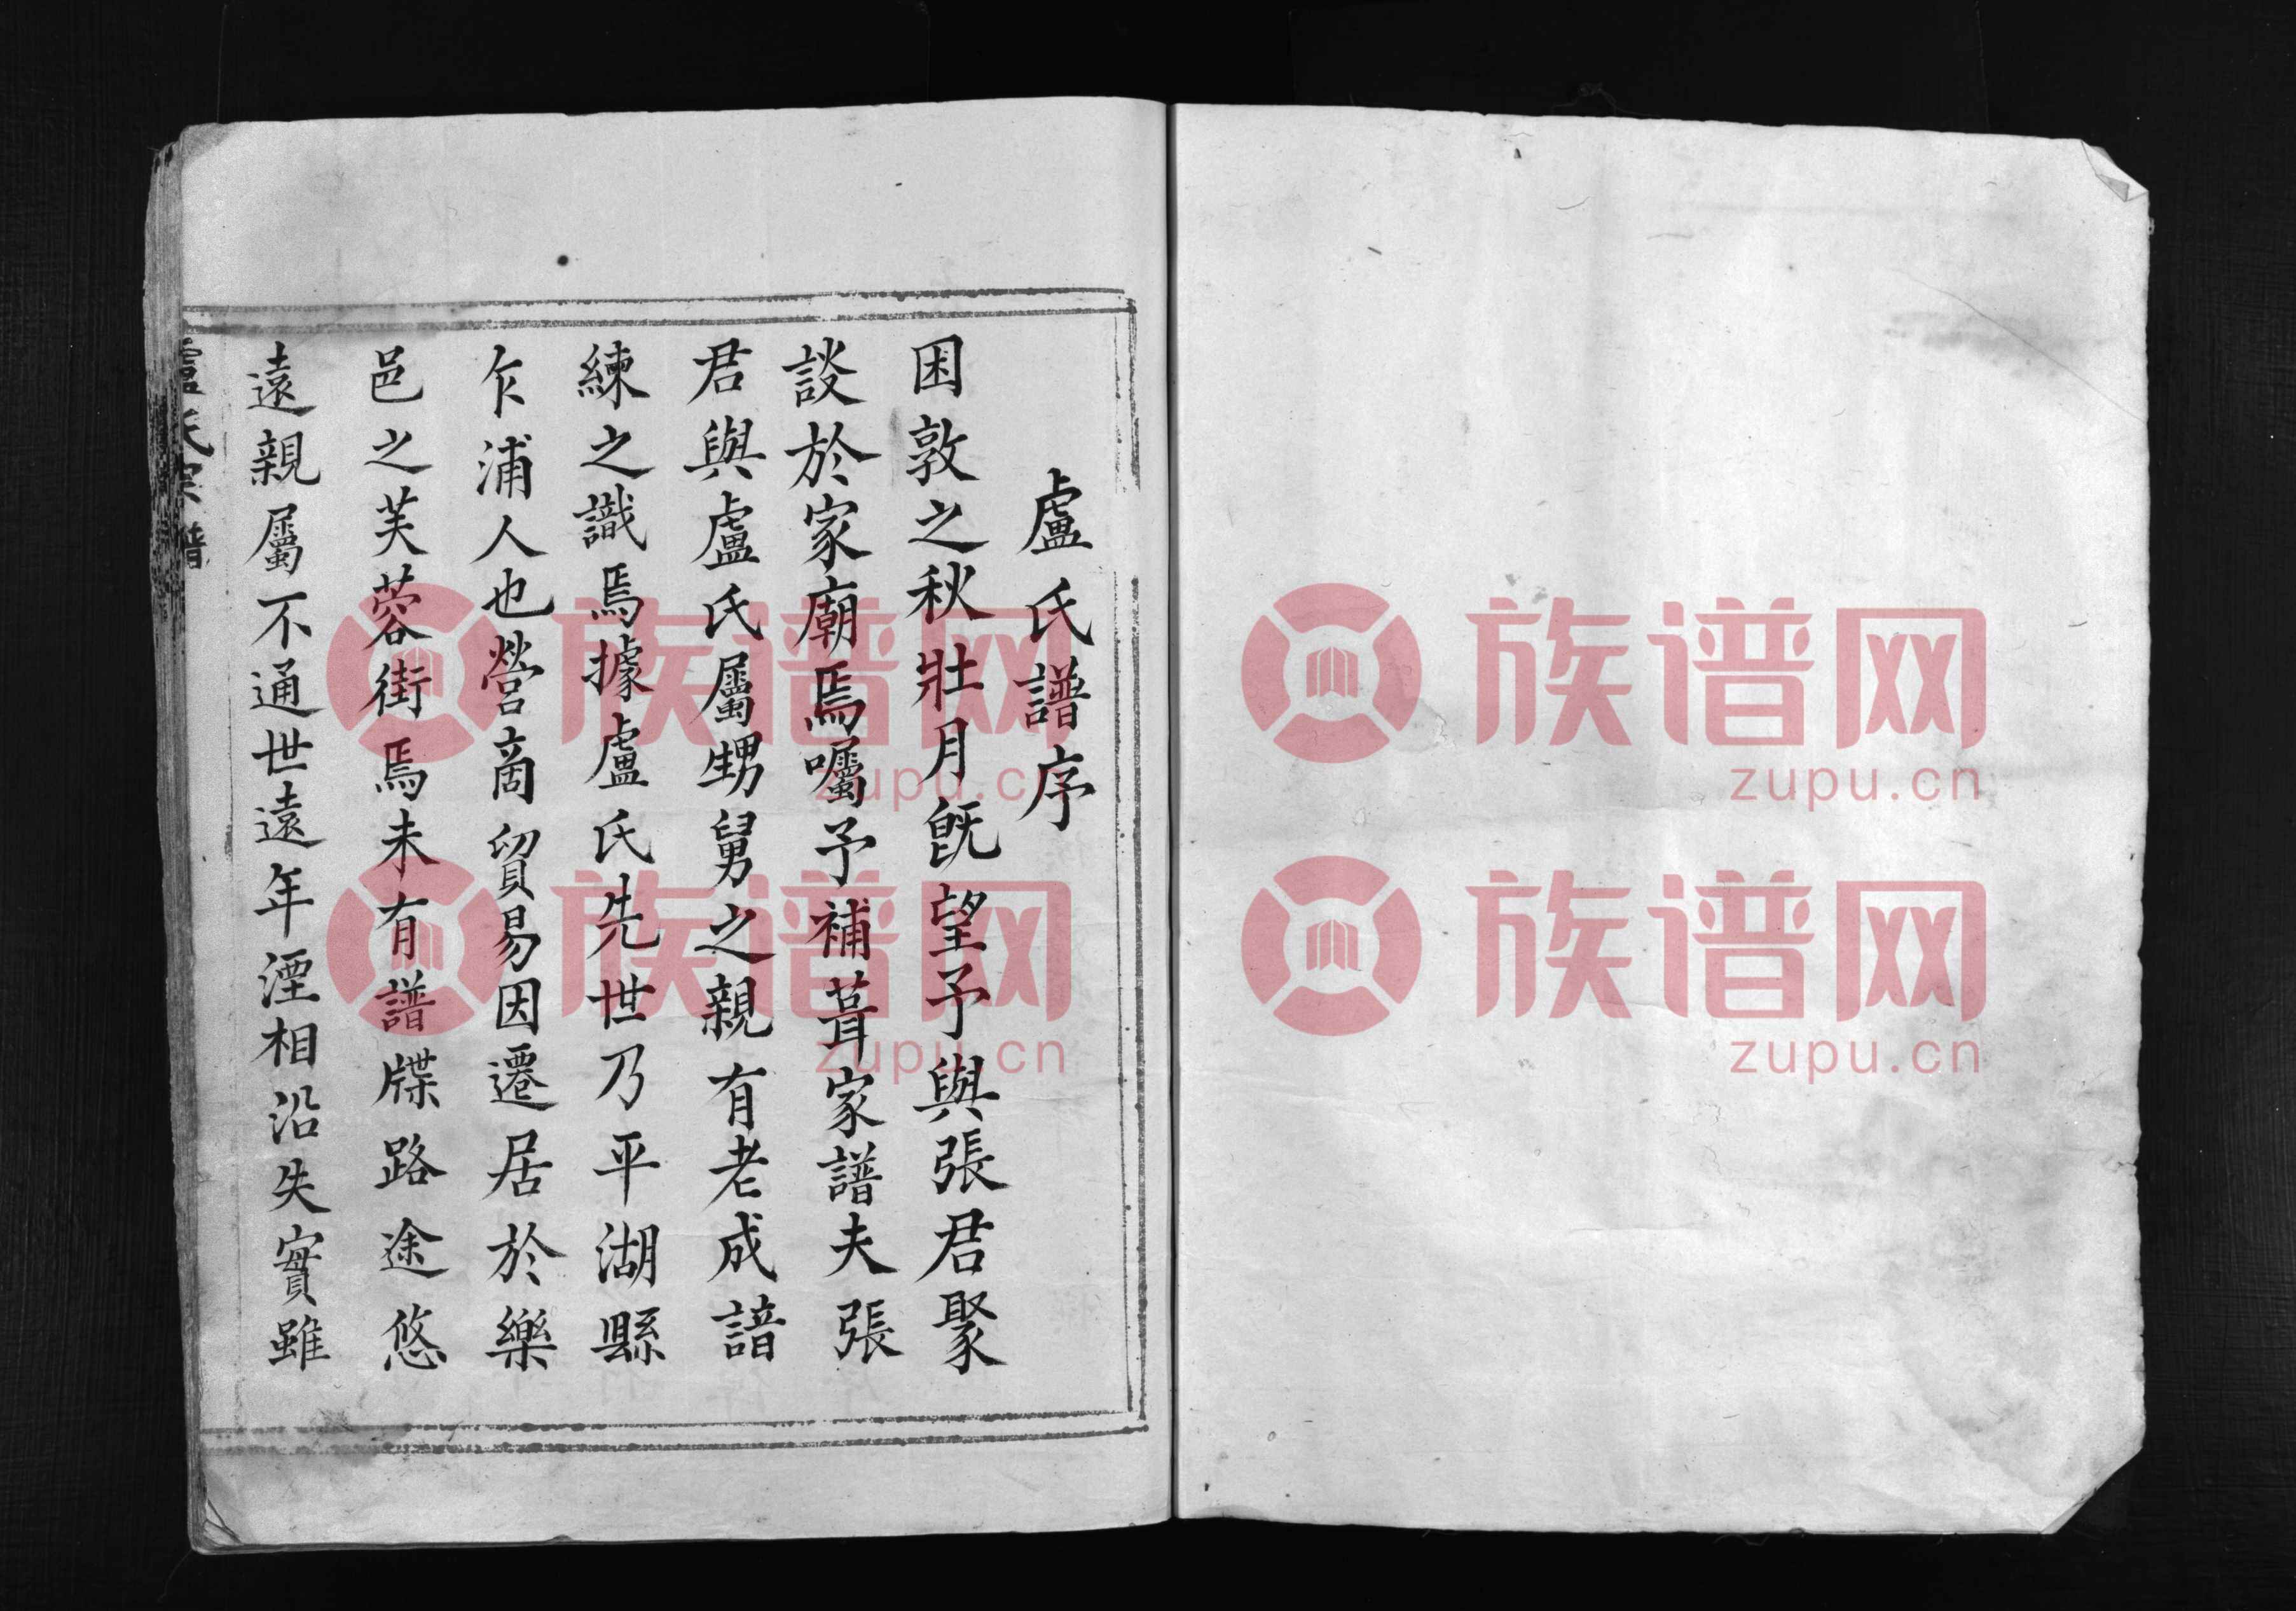 盧氏譜序
困敦之秋壯月旣望予與張君聚
談於家廟焉囑予補葺家譜夫張
君與盧氏屬甥舅之親有老成諳
練之識焉據盧氏先世乃平湖縣
乍浦人也營商貿易因遷居於樂
邑之芙蓉街焉未有譜牒路途悠
遠親屬不通世遠年湮相沿失實雖
盧氏宗譜
族谱网
zupu.cn
族谱网
zupu.cn
族谱网
zupu.cn
族谱网
zupu.cn